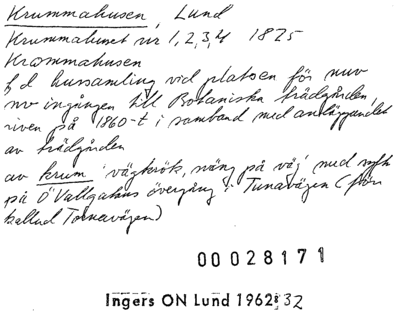 Krummahusen, Lund
Krummahuset nr 1, 2, 3, 4 1825
Krommahusen
f d hussamling vid platsen för nuv
nv ingången till Botaniska trädgården,
riven på 1860-t i samband med anläggandet
av trädgården
av krum 'vägkrök, sväng på väg' med syft
på Ö Vallgatans övergång i Tunavägen (förr
kallad Tornavägen)
00028171
Ingers ON Lund 1962 : 32